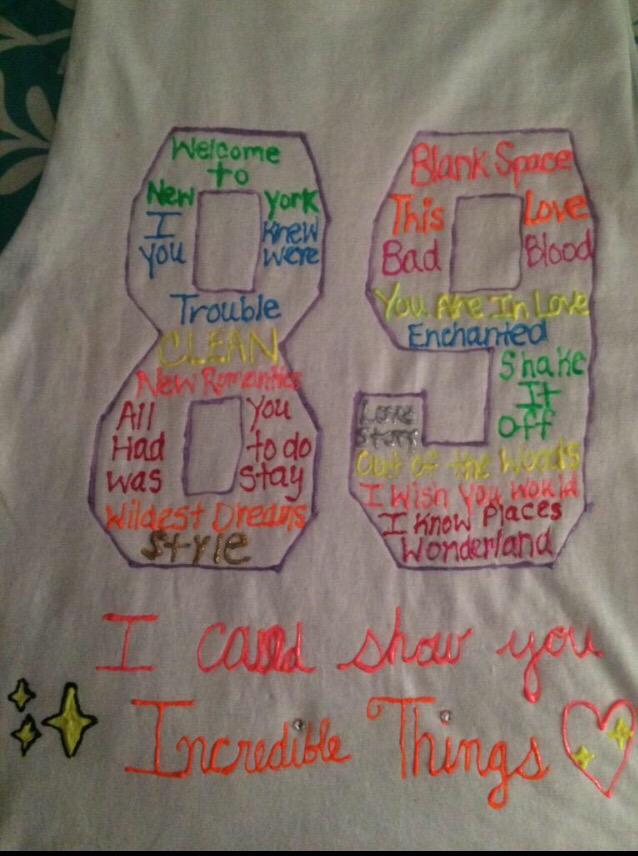 Welcome
to
New York
I Knew
you were
Trouble
CLEAN
New Romantics
All You
Had to do
was stay
Wildest Dreams
style
Blank Space
This Love
Bad Blood
You Are In Love
Enchanted
Shake
It
off
Love
Story
Out of the Woods
I Wish You Would
I Know Places
Wonderland
I could show you
Incredible Things